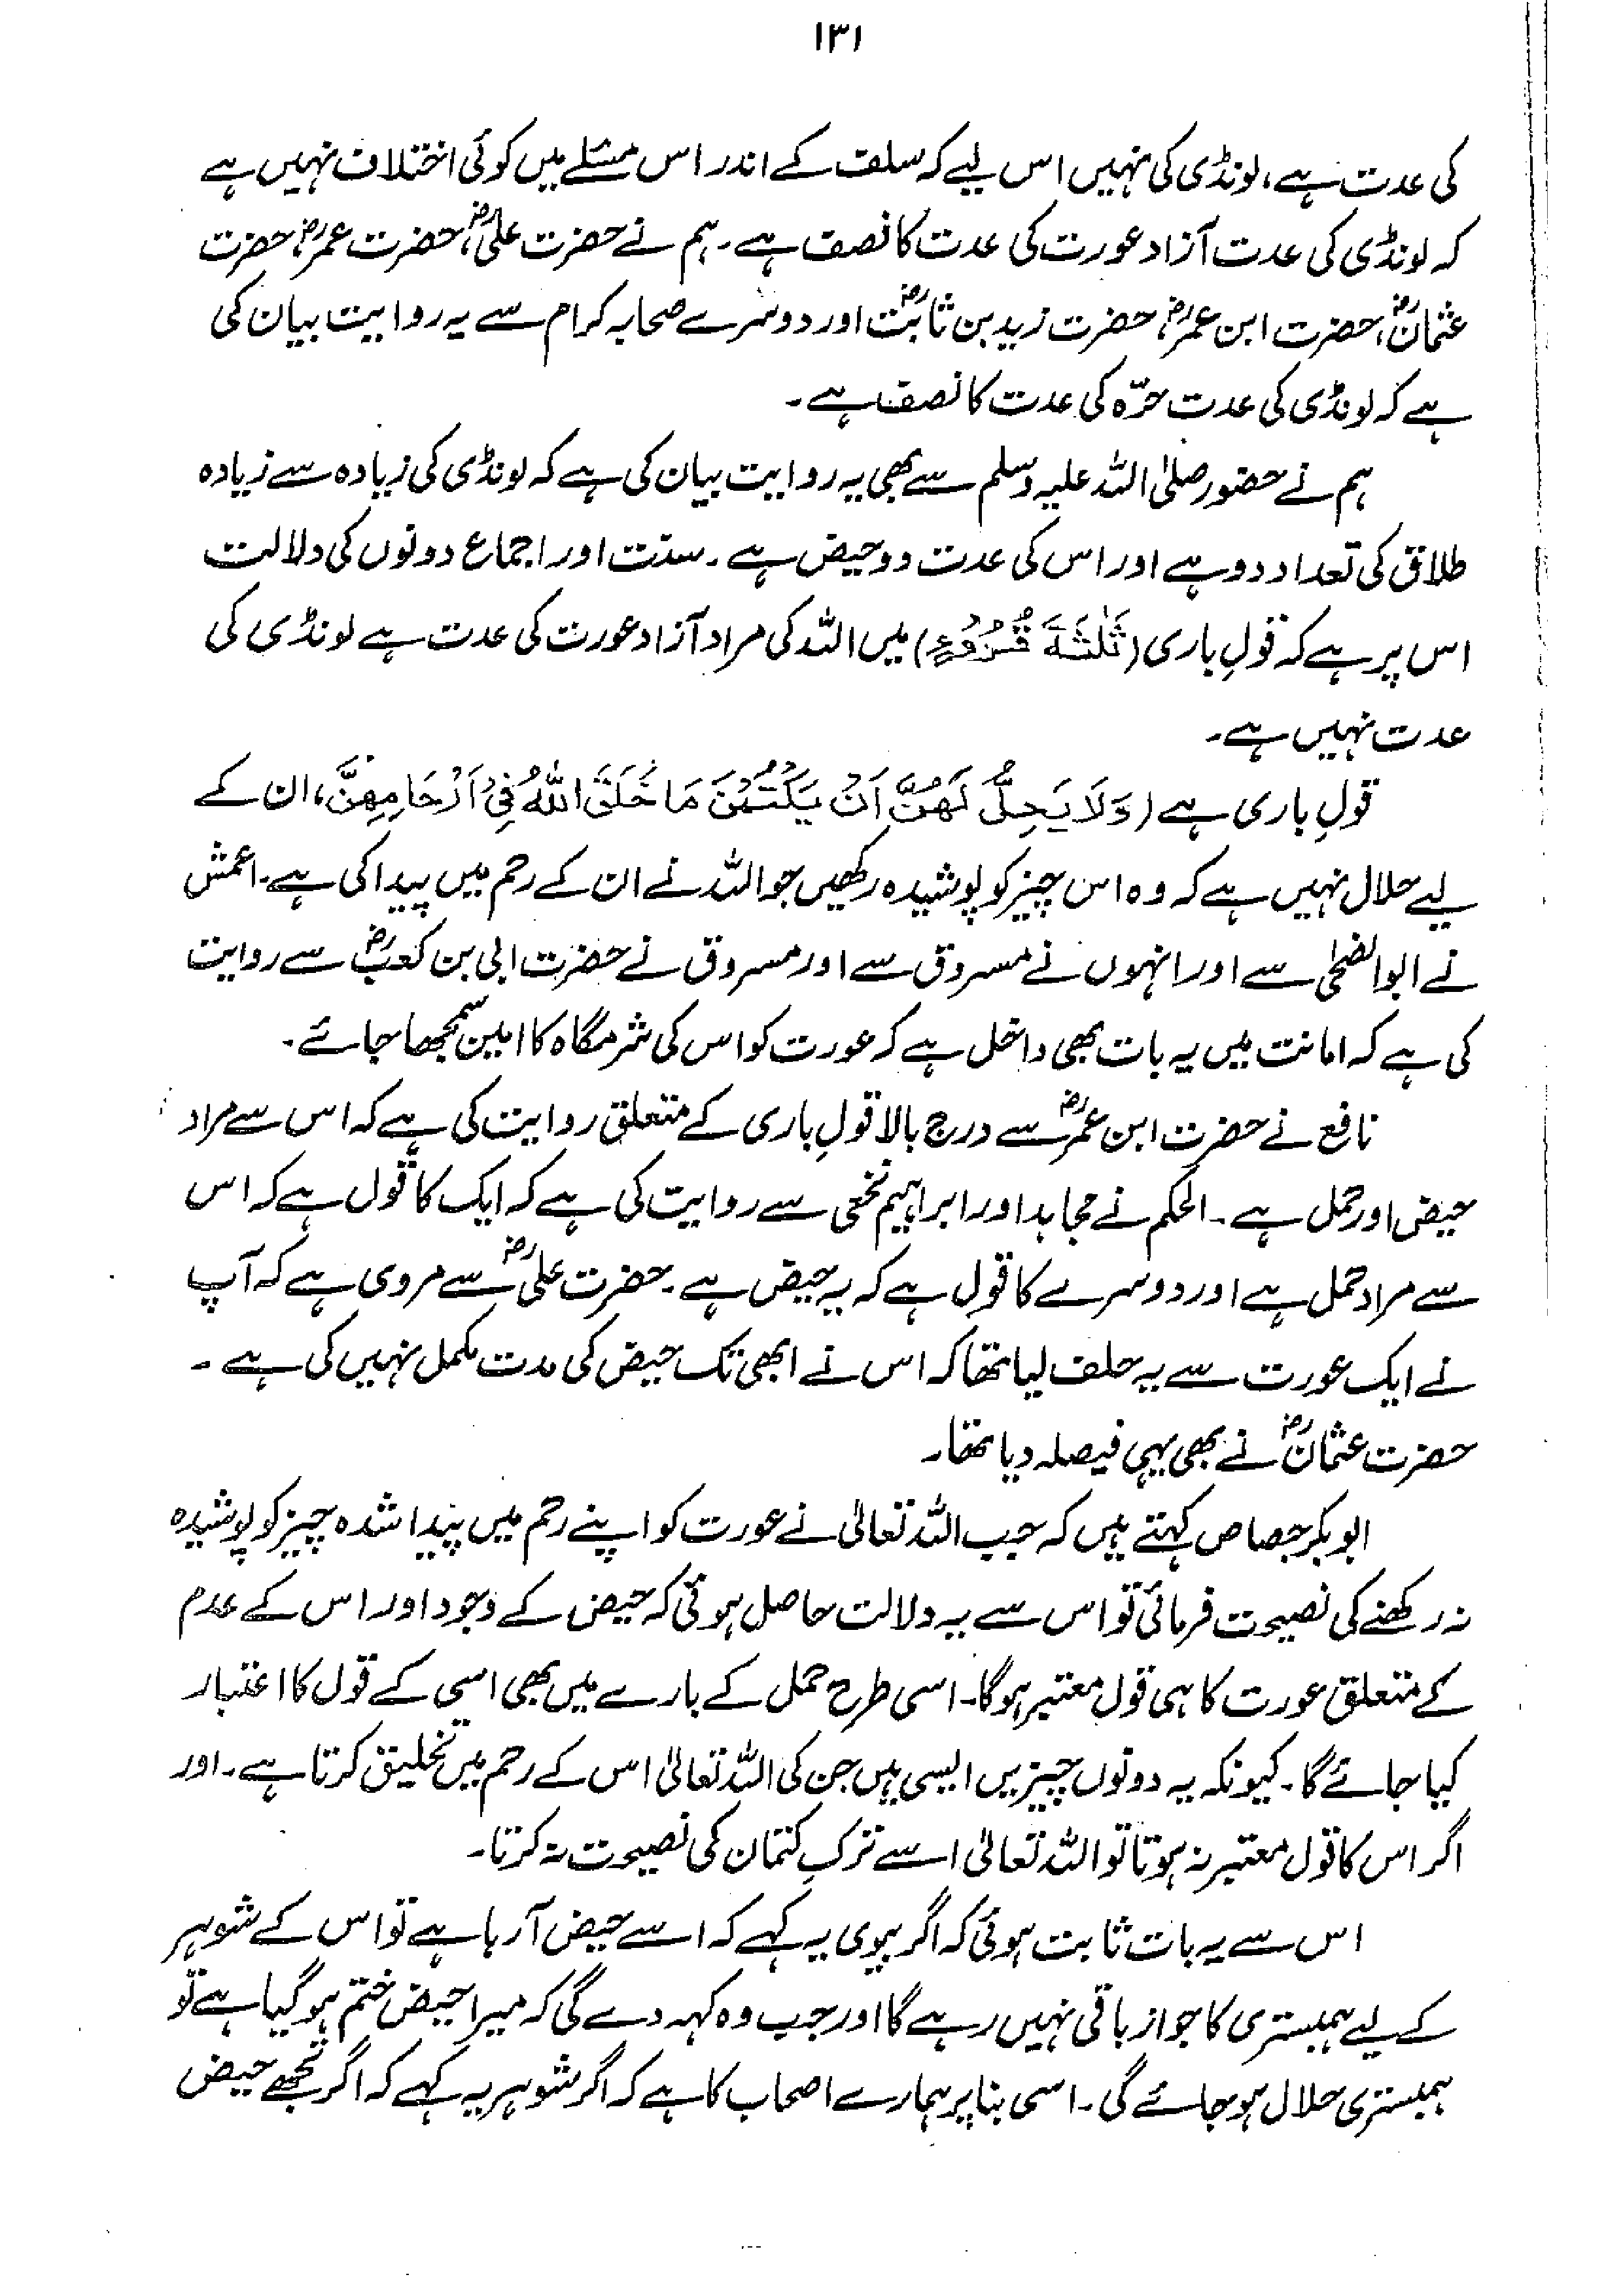 ۱۳۱
کی عدت ہے، لونڈی کی نہیں اس لیے کہ سلف کے اندر اس مسئلے میں کوئی اختلاف نہیں ہے
کہ لونڈی کی عدت آزاد عورت کی عدت کا نصف ہے۔ ہم نے حضرت علیؓ، حضرت عمرؓ، حضرت
عثمانؓ، حضرت ابن عمرؓ، حضرت زید بن ثابتؓ اور دوسرے صحابہ کرام سے یہ روایت بیان کی
ہے کہ لونڈی کی عدت حرّہ کی عدت کا نصف ہے۔
ہم نے حضور صلی اللہ علیہ وسلم سے بھی یہ روایت بیان کی ہے کہ لونڈی کی زیادہ سے زیادہ
طلاق کی تعداد دو ہے اور اس کی عدت دو حیض ہے۔ سنت اور اجماع دونوں کی دلالت
اس پر ہے کہ قولِ باری (ثَلٰثَةَ قُرُوْءٍ) میں اللہ کی مراد آزاد عورت کی عدت ہے لونڈی کی
عدت نہیں ہے۔
قولِ باری ہے (وَلَا یَحِلُّ لَهُنَّ اَنْ یَكْتُمْنَ مَا خَلَقَ اللهُ فِیْ اَرْحَامِهِنَّ، ان کے
لیے حلال نہیں ہے کہ وہ اس چیز کو پوشیدہ رکھیں جو اللہ نے ان کے رحم میں پیدا کی ہے۔ اعمش
نے ابوالضحیٰ سے اور انہوں نے مسروق سے اور مسروق نے حضرت ابی بن کعبؓ سے روایت
کی ہے کہ امانت میں یہ بات بھی داخل ہے کہ عورت کو اس کی شرمگاہ کا امین سمجھا جائے۔
نافع نے حضرت ابن عمرؓ سے درج بالا قولِ باری کے متعلق روایت کی ہے کہ اس سے مراد
حیض اور حمل ہے۔ الحکم نے مجاہد اور ابراہیم نخعی سے روایت کی ہے کہ ایک کا قول ہے کہ اس
سے مراد حمل ہے اور دوسرے کا قول ہے کہ یہ حیض ہے۔ حضرت علیؓ سے مروی ہے کہ آپ
نے ایک عورت سے یہ حلف لیا تھا کہ اس نے ابھی تک حیض کی مدت مکمل نہیں کی ہے۔
حضرت عثمانؓ نے بھی یہی فیصلہ دیا تھا۔
ابوبکر جصاص کہتے ہیں کہ جب اللہ تعالیٰ نے عورت کو اپنے رحم میں پیدا شدہ چیز کو پوشیدہ
نہ رکھنے کی نصیحت فرمائی تو اس سے یہ دلالت حاصل ہوئی کہ حیض کے وجود اور اس کے عدم
کے متعلق عورت کا ہی قول معتبر ہوگا۔ اسی طرح حمل کے بارے میں بھی اسی کے قول کا اعتبار
کیا جائے گا۔ کیونکہ یہ دونوں چیزیں ایسی ہیں جن کی اللہ تعالیٰ اس کے رحم میں تخلیق کرتا ہے۔ اور
اگر اس کا قول معتبر نہ ہوتا تو اللہ تعالیٰ اسے ترکِ کتمان کی نصیحت نہ کرتا۔
اس سے یہ بات ثابت ہوئی کہ اگر بیوی یہ کہے کہ اسے حیض آ رہا ہے تو اس کے شوہر
کے لیے ہمبستری کا جواز باقی نہیں رہے گا اور جب وہ کہہ دے گی کہ میرا حیض ختم ہو گیا ہے تو
ہمبستری حلال ہو جائے گی۔ اسی بنا پر ہمارے اصحاب کا ہے کہ اگر شوہر یہ کہے کہ اگر تجھے حیض